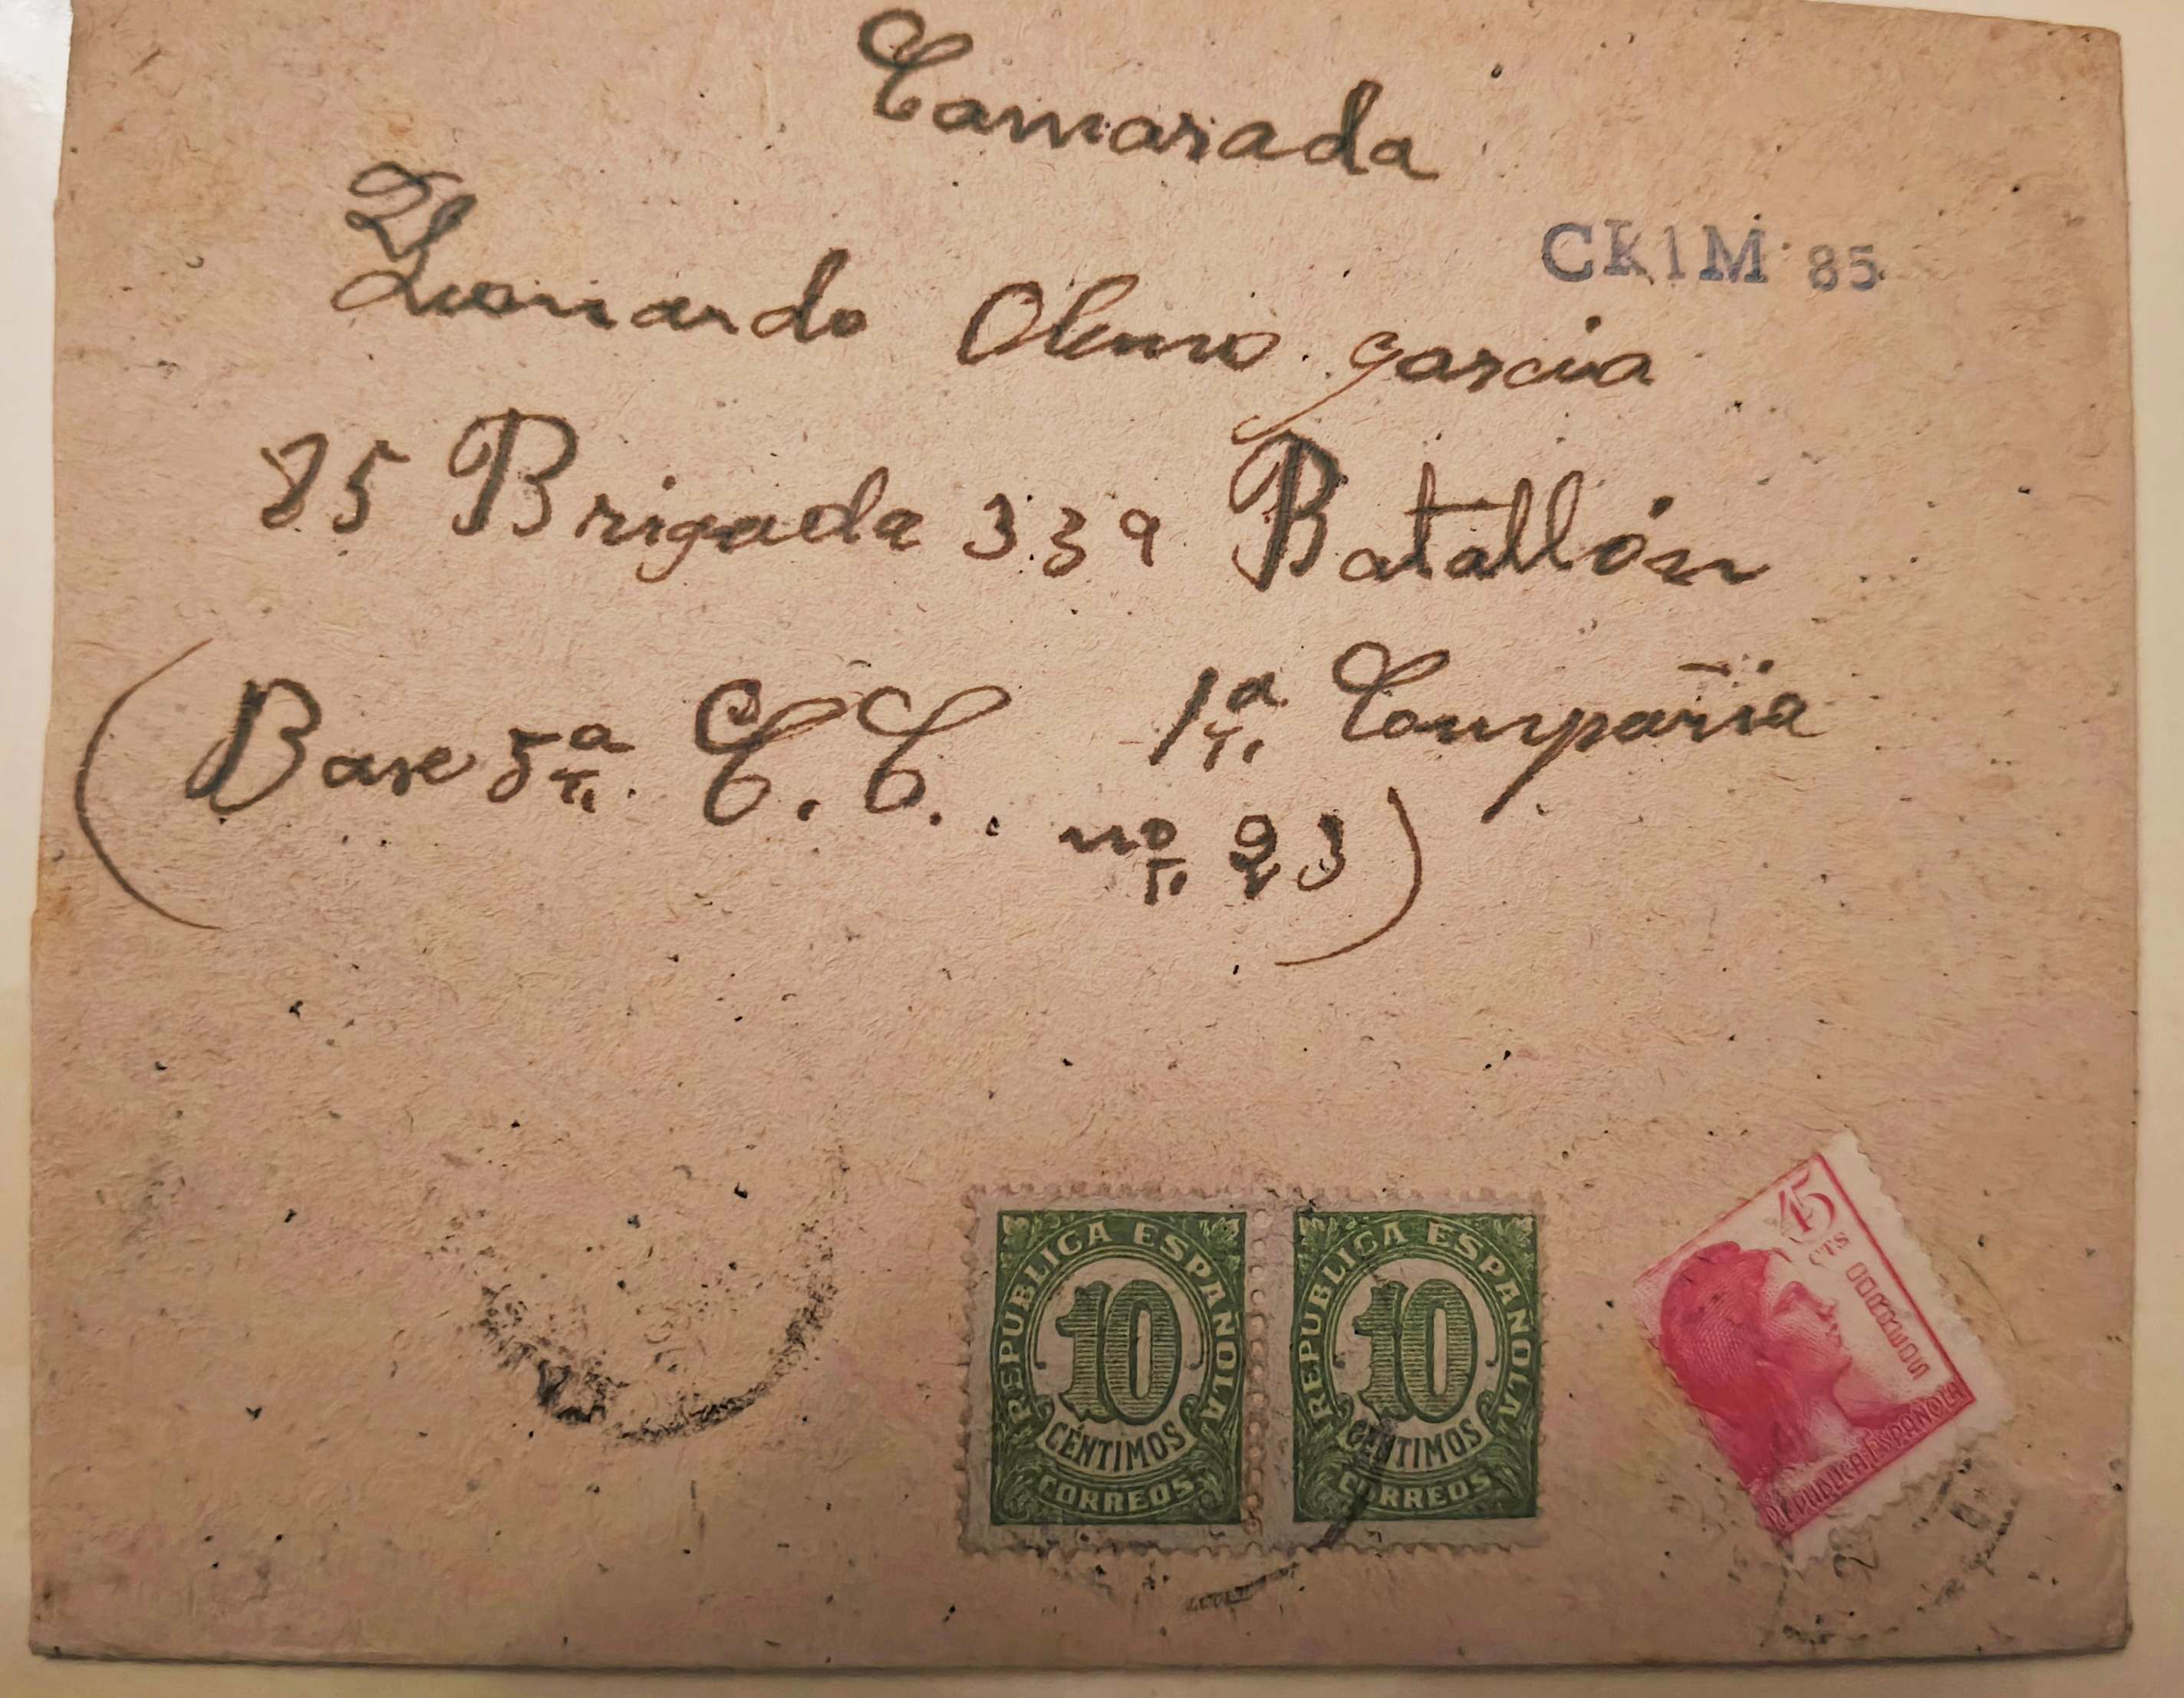 Camarada
CRIM 85
Leonardo Olmo garcia
85 Brigada 339 Batallón
(Base 5ª C.C. 1ª Compañia
nº 23)
REPUBLICA ESPAÑOLA
10
CÉNTIMOS
CORREOS
REPUBLICA ESPAÑOLA
10
CÉNTIMOS
CORREOS
45
CTS
CORREOS
REPUBLICA ESPAÑOLA